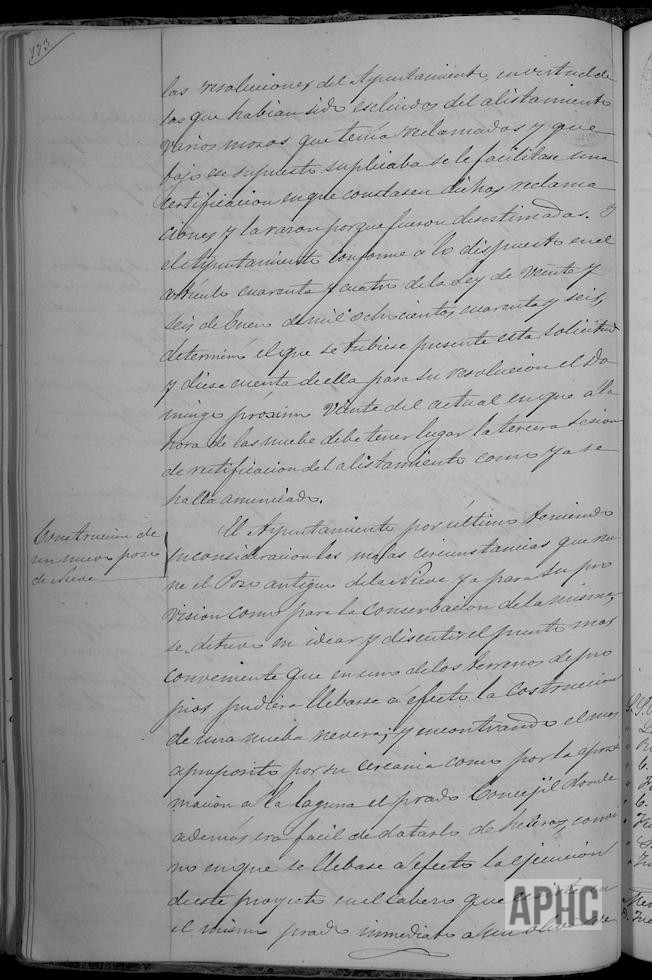 173
las resoluciones del Ayuntamiento, en virtud de
las que habian sido escluidos del alistamiento
varios mozos que tenia reclamados y que
bajo ese supuesto suplicaba se le facilitase una
certificacion en que constasen dichas reclama
ciones y la razon porque fueron desestimadas. Y
el Ayuntamiento conforme a lo dispuesto en el
articulo cuarenta y cuatro de la Ley de veinte y
seis de Enero de mil ochocientos cuarenta y seis,
determinó el que se tubiese presente esta solicitud
y diese cuenta de ella para su resolucion el Do
mingo próximo veinte del actual en que a la
hora de las nuebe debe tener lugar la tercera sesion
de rectificacion del alistamiento como ya se
halla anunciado.
Construccion de
un nuevo pozo
de Nieve
El Ayuntamiento por último teniendo
in consideracion las malas circunstancias que reu
ne el Pozo antiguo de la Nieve ya para su pro
vision como para la conservacion de la misma,
se detuvo en idear y discutir el punto mas
conveniente que en uno de los terrenos de pro
pios pudiera llebarse a efecto la costruccion
de una nueba nevera; y encontrando el mas
aproposito por su cercania como por la aprosi
macion a la laguna el prado Concejil donde
además era facil de datarlo de heleras, convi
no en que se llebase a efecto la ejecucion
de este proyecto en el cabero que existe en
el mismo prado inmediato
APHC